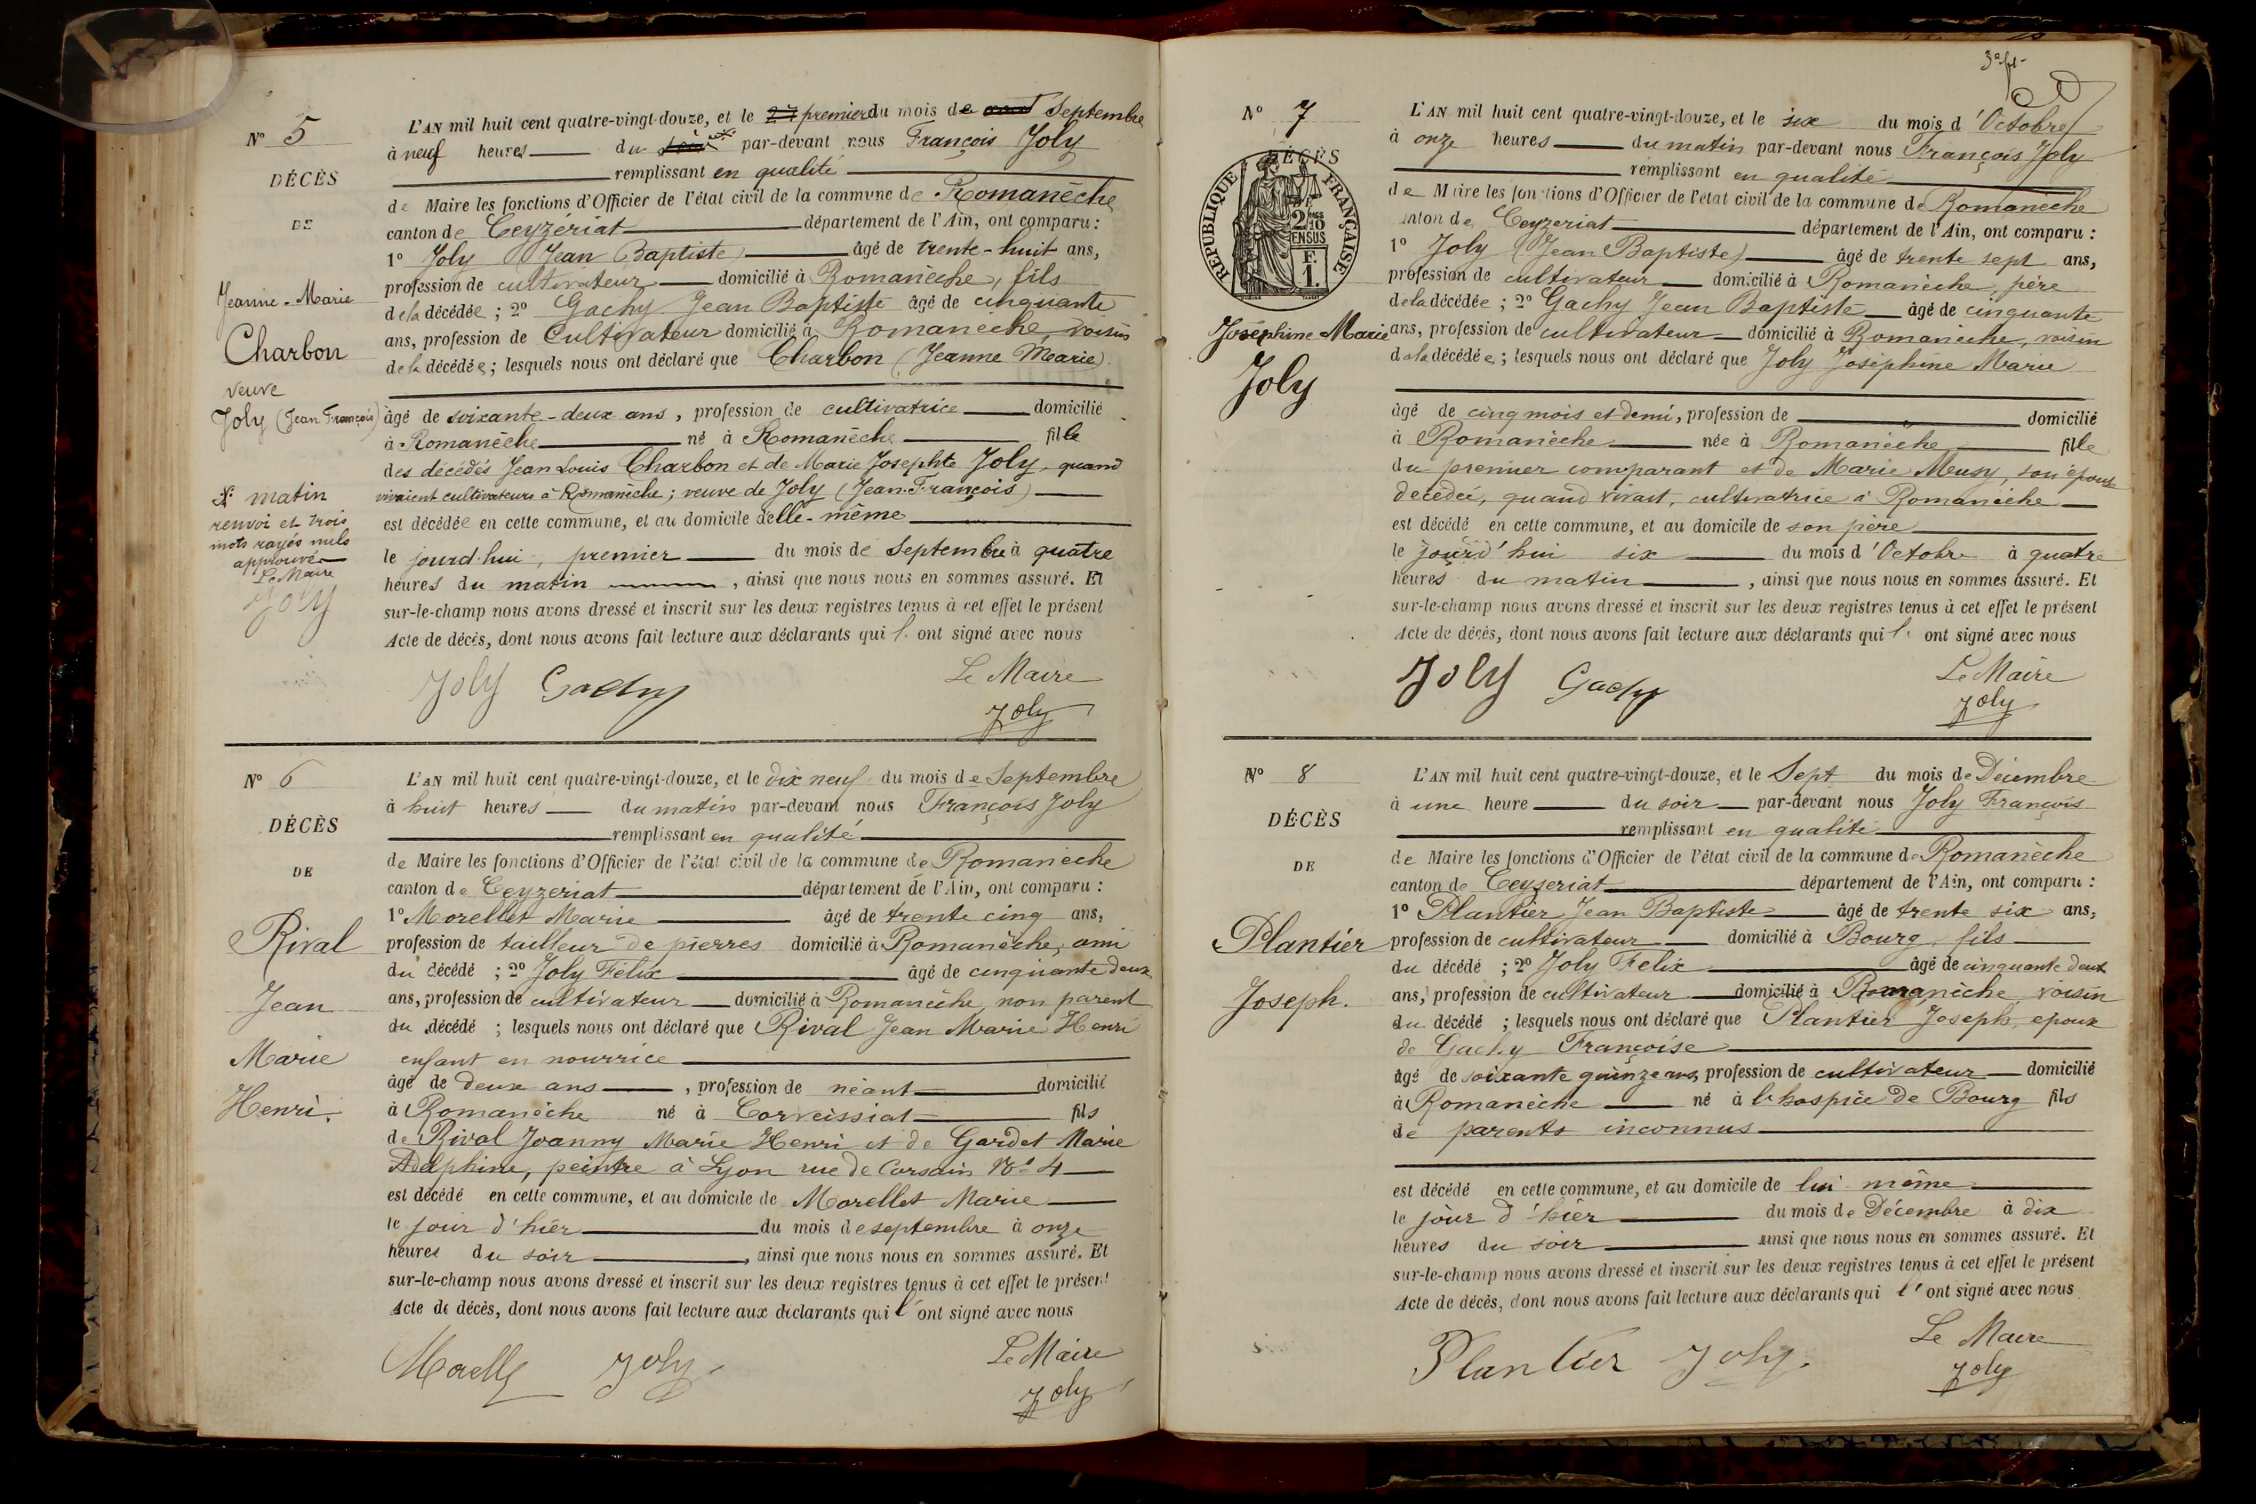 Nº 5
DÉCÈS
DE
Jeanne-Marie
Charbon
veuve
Joly (Jean François)
matin
renvoi et trois
mots rayés nuls
approuvé
Le Maire
Joly
L'AN mil huit cent quatre-vingt-douze, et le premier du mois de Septembre
à neuf heures du par-devant nous François Joly
remplissant en qualité
de Maire les fonctions d'Officier de l'état civil de la commune de Romanèche
canton de Ceyzériat département de l'Ain, ont comparu :
1º Joly (Jean Baptiste) âgé de trente-huit ans,
profession de cultivateur domicilié à Romanèche, fils
de la décédée ; 2º Gachy Jean Baptiste âgé de cinquante
ans, profession de Cultivateur domicilié à Romanèche, voisin
de la décédée ; lesquels nous ont déclaré que Charbon (Jeanne Marie)
âgé de soixante-deux ans, profession de cultivatrice domicilié
à Romanèche né à Romanèche fille
des décédés Jean Louis Charbon et de Marie Josephte Joly, quand
vivaient cultivateurs à Romanèche ; veuve de Joly (Jean-François)
est décédée en cette commune, et au domicile d'elle-même
le jourd'hui, premier du mois de Septembre à quatre
heures du matin, ainsi que nous nous en sommes assuré. Et
sur-le-champ nous avons dressé et inscrit sur les deux registres tenus à cet effet le présent
Acte de décès, dont nous avons fait lecture aux déclarants qui l'ont signé avec nous
Joly Gachy
Le Maire
Joly
Nº 6
DÉCÈS
DE
Rival
Jean
Marie
Henri.
L'AN mil huit cent quatre-vingt-douze, et le dix neuf du mois de Septembre
à huit heures du matin par-devant nous François Joly
remplissant en qualité
de Maire les fonctions d'Officier de l'état civil de la commune de Romanèche
canton de Ceyzeriat département de l'Ain, ont comparu :
1º Morellet Marie âgé de trente cinq ans,
profession de tailleur de pierres domicilié à Romanèche, ami
du décédé ; 2º Joly Félix âgé de cinquante deux
ans, profession de cultivateur domicilié à Romanèche, non parent
du décédé ; lesquels nous ont déclaré que Rival Jean Marie Henri
enfant en nourrice
âgé de deux ans, profession de néant domicilié
à Romanèche né à Corveissiat fils
de Rival Joanny Marie Henri et de Gardet Marie
Adelphine, peintre à Lyon rue de Nº 4
est décédé en cette commune, et au domicile de Morellet Marie
le jour d'hier du mois de septembre à onze
heures du soir, ainsi que nous nous en sommes assuré. Et
sur-le-champ nous avons dressé et inscrit sur les deux registres tenus à cet effet le présent
Acte de décès, dont nous avons fait lecture aux déclarants qui l'ont signé avec nous
Joly
Le Maire
Joly
Nº 7
DÉCÈS
RÉPUBLIQUE FRANÇAISE
2/10 EN SUS
F. 1.
Joséphine Marie
Joly
L'AN mil huit cent quatre-vingt-douze, et le six du mois d'Octobre
à onze heures du matin par-devant nous François Joly
remplissant en qualité
de Maire les fonctions d'Officier de l'état civil de la commune de Romanèche
canton de Ceyzeriat département de l'Ain, ont comparu :
1º Joly (Jean Baptiste) âgé de trente sept ans,
profession de cultivateur domicilié à Romanèche, père
de la décédée ; 2º Gachy Jean Baptiste âgé de cinquante
ans, profession de cultivateur domicilié à Romanèche, voisin
de la décédée ; lesquels nous ont déclaré que Joly Joséphine Marie
âgé de cinq mois et demi, profession de domicilié
à Romanèche née à Romanèche fille
du premier comparant et de Marie Musy, son épouse
décédée, quand vivait, cultivatrice à Romanèche
est décédé en cette commune, et au domicile de son père
le jourd'hui six du mois d'Octobre à quatre
heures du matin, ainsi que nous nous en sommes assuré. Et
sur-le-champ nous avons dressé et inscrit sur les deux registres tenus à cet effet le présent
Acte de décès, dont nous avons fait lecture aux déclarants qui l'ont signé avec nous
Joly Gachy
Le Maire
Joly
Nº 8
DÉCÈS
DE
Plantier
Joseph.
L'AN mil huit cent quatre-vingt-douze, et le Sept du mois de Décembre
à une heure du soir par-devant nous Joly François
remplissant en qualité
de Maire les fonctions d'Officier de l'état civil de la commune de Romanèche
canton de Ceyzeriat département de l'Ain, ont comparu :
1º Plantier Jean Baptiste âgé de trente six ans,
profession de cultivateur domicilié à Bourg, fils
du décédé ; 2º Joly Félix âgé de cinquante deux
ans, profession de cultivateur domicilié à Romanèche, voisin
du décédé ; lesquels nous ont déclaré que Plantier Joseph, epoux
de Gachy Françoise
âgé de soixante quinze ans, profession de cultivateur domicilié
à Romanèche né à l'hospice de Bourg fils
de parents inconnus
est décédé en cette commune, et au domicile de lui même
le jour d'hier du mois de Décembre à dix
heures du soir ainsi que nous nous en sommes assuré. Et
sur-le-champ nous avons dressé et inscrit sur les deux registres tenus à cet effet le présent
Acte de décès, dont nous avons fait lecture aux déclarants qui l'ont signé avec nous
Plantier Joly.
Le Maire
Joly